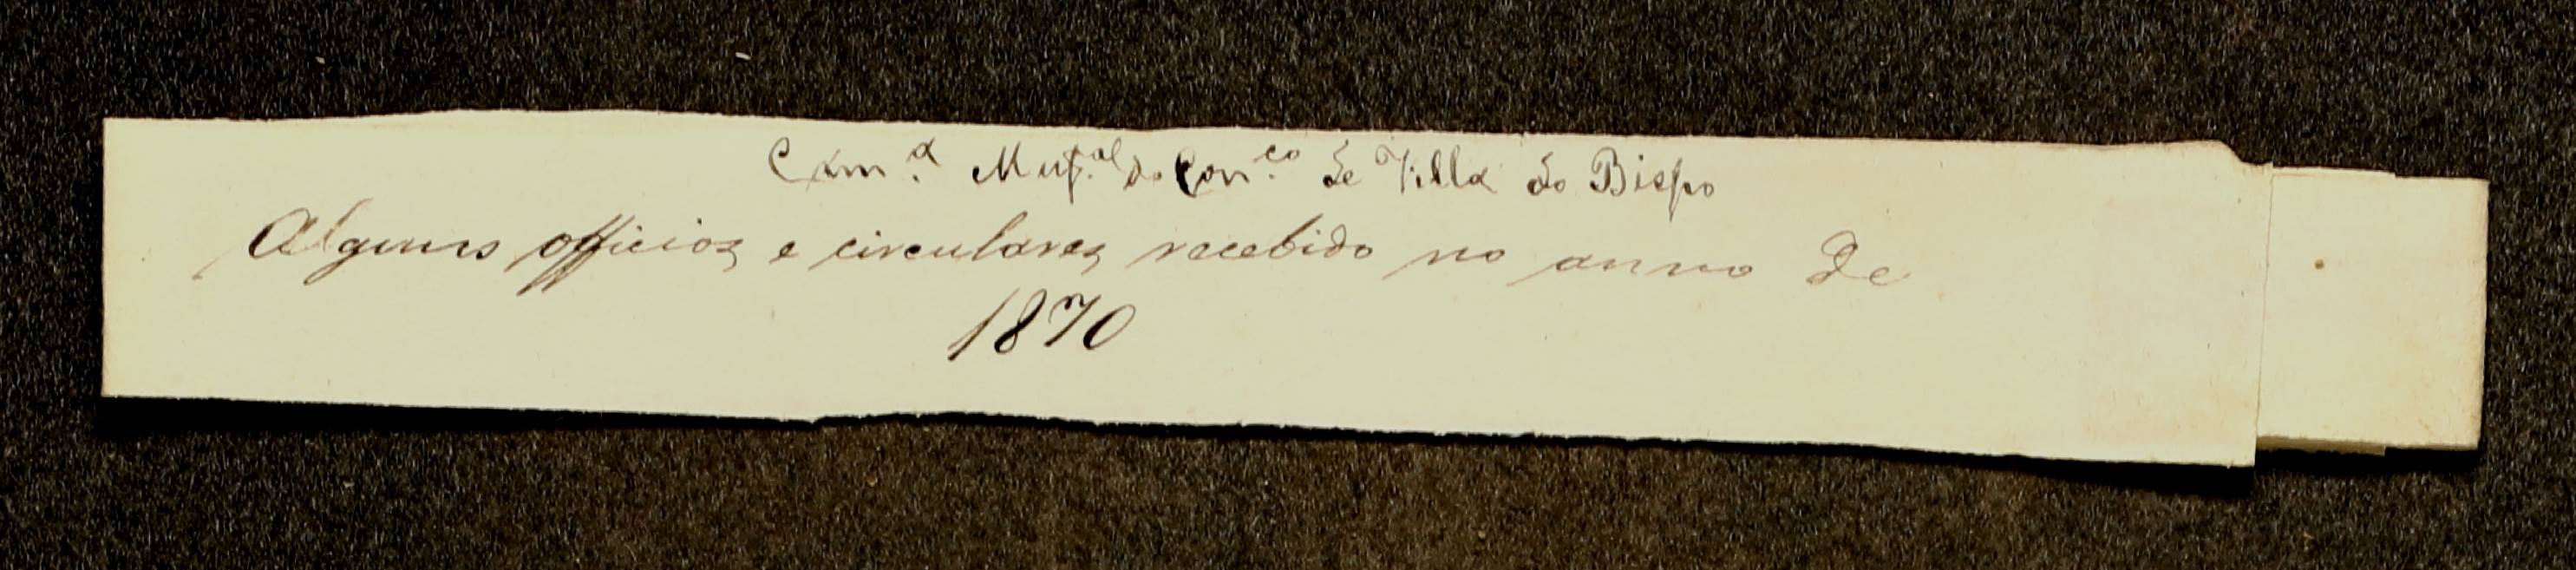 Cam.ª Mup.al do Con.co de Villa do Bispo
Alguns officios e circulares recebido no anno de
1870